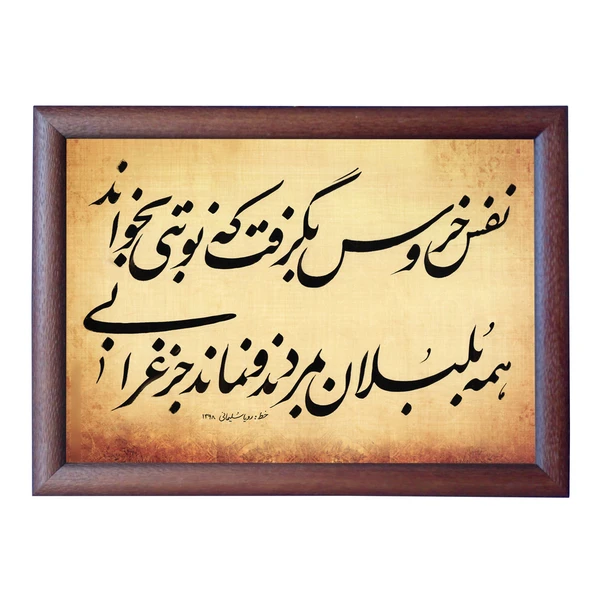 نفس خروس بگرفت که نوبتی بخواند
همه بلبلان بمردند و نماند جز غرابی
خط: رویا سلیمانی ۱۳۹۸